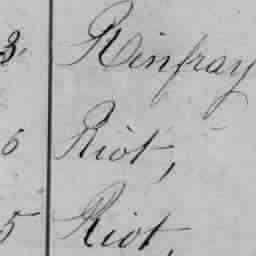 3 Rinfray
6 Riot,
5 Riot,